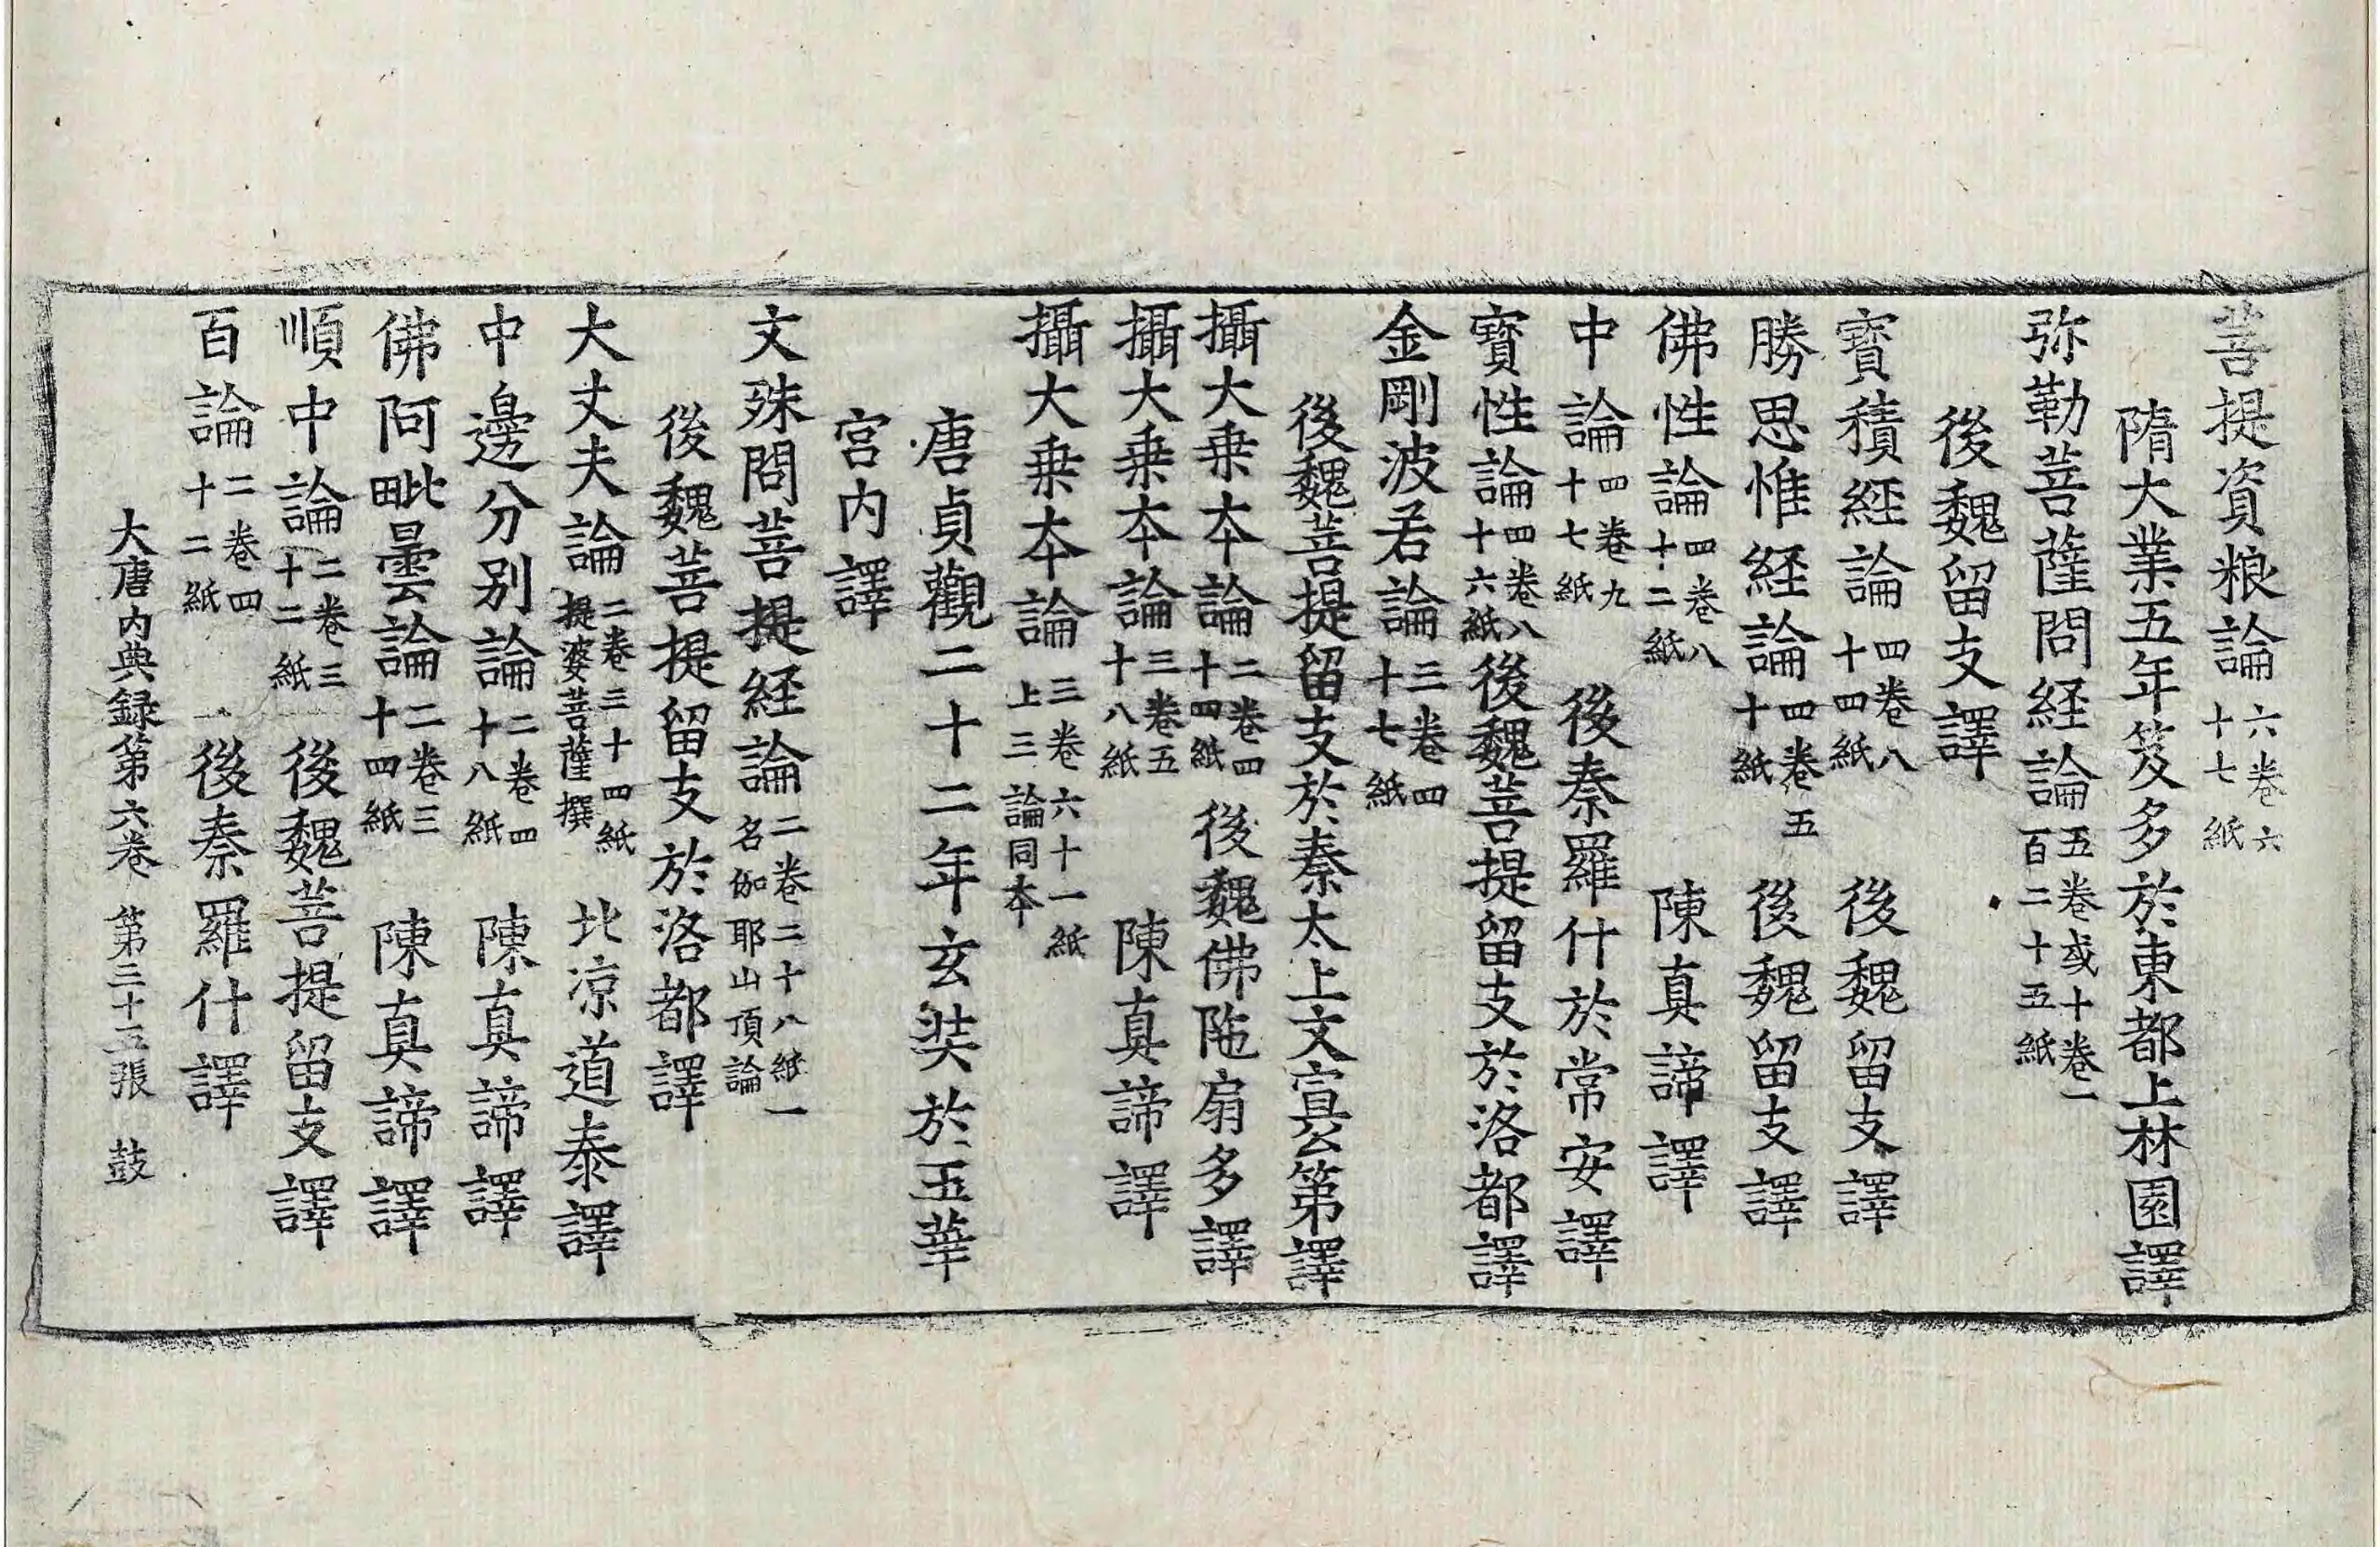 菩提資粮論六卷六十七紙
隋大業五年笈多於東都上林園譯
弥勒菩薩問経論五卷或十卷一百二十五紙
後魏留支譯
寳積経論四卷八十四紙 後魏留支譯
勝思惟経論四卷五十紙 後魏留支譯
佛性論四卷八十二紙 陳真諦譯
中論四卷九十七紙 後秦羅什於常安譯
寳性論四卷八十六紙後魏菩提留支於洛都譯
金剛波若論三卷四十七紙
後魏菩提留支於秦太上文宣公第譯
攝大乗本論二卷四十四紙 後魏佛陁扇多譯
攝大乗本論三卷五十八紙 陳真諦譯
攝大乗本論三卷六十一紙上三論同本
唐貞觀二十二年玄奘於玉華
宮内譯
文殊問菩提経論二卷二十八紙一名伽耶山頂論
後魏菩提留支於洛都譯
大丈夫論二卷三十四紙提婆菩薩撰 北凉道泰譯
中邊分别論二卷四十八紙 陳真諦譯
佛阿毗曇論二卷三十四紙 陳真諦譯
順中論二卷三十二紙 後魏菩提留支譯
百論二卷四十二紙 後秦羅什譯
大唐内典録第六卷 第二十五張 鼓